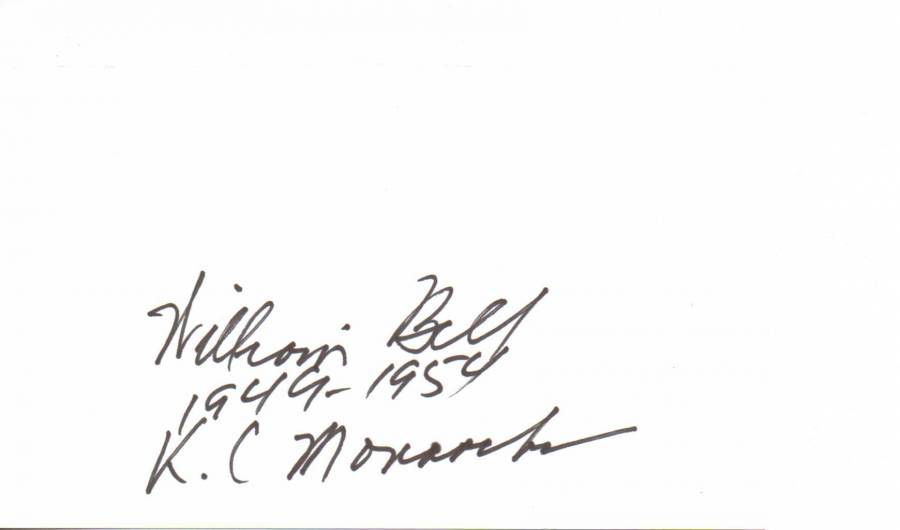 William Bell
1949-1954
K. C Monarchs